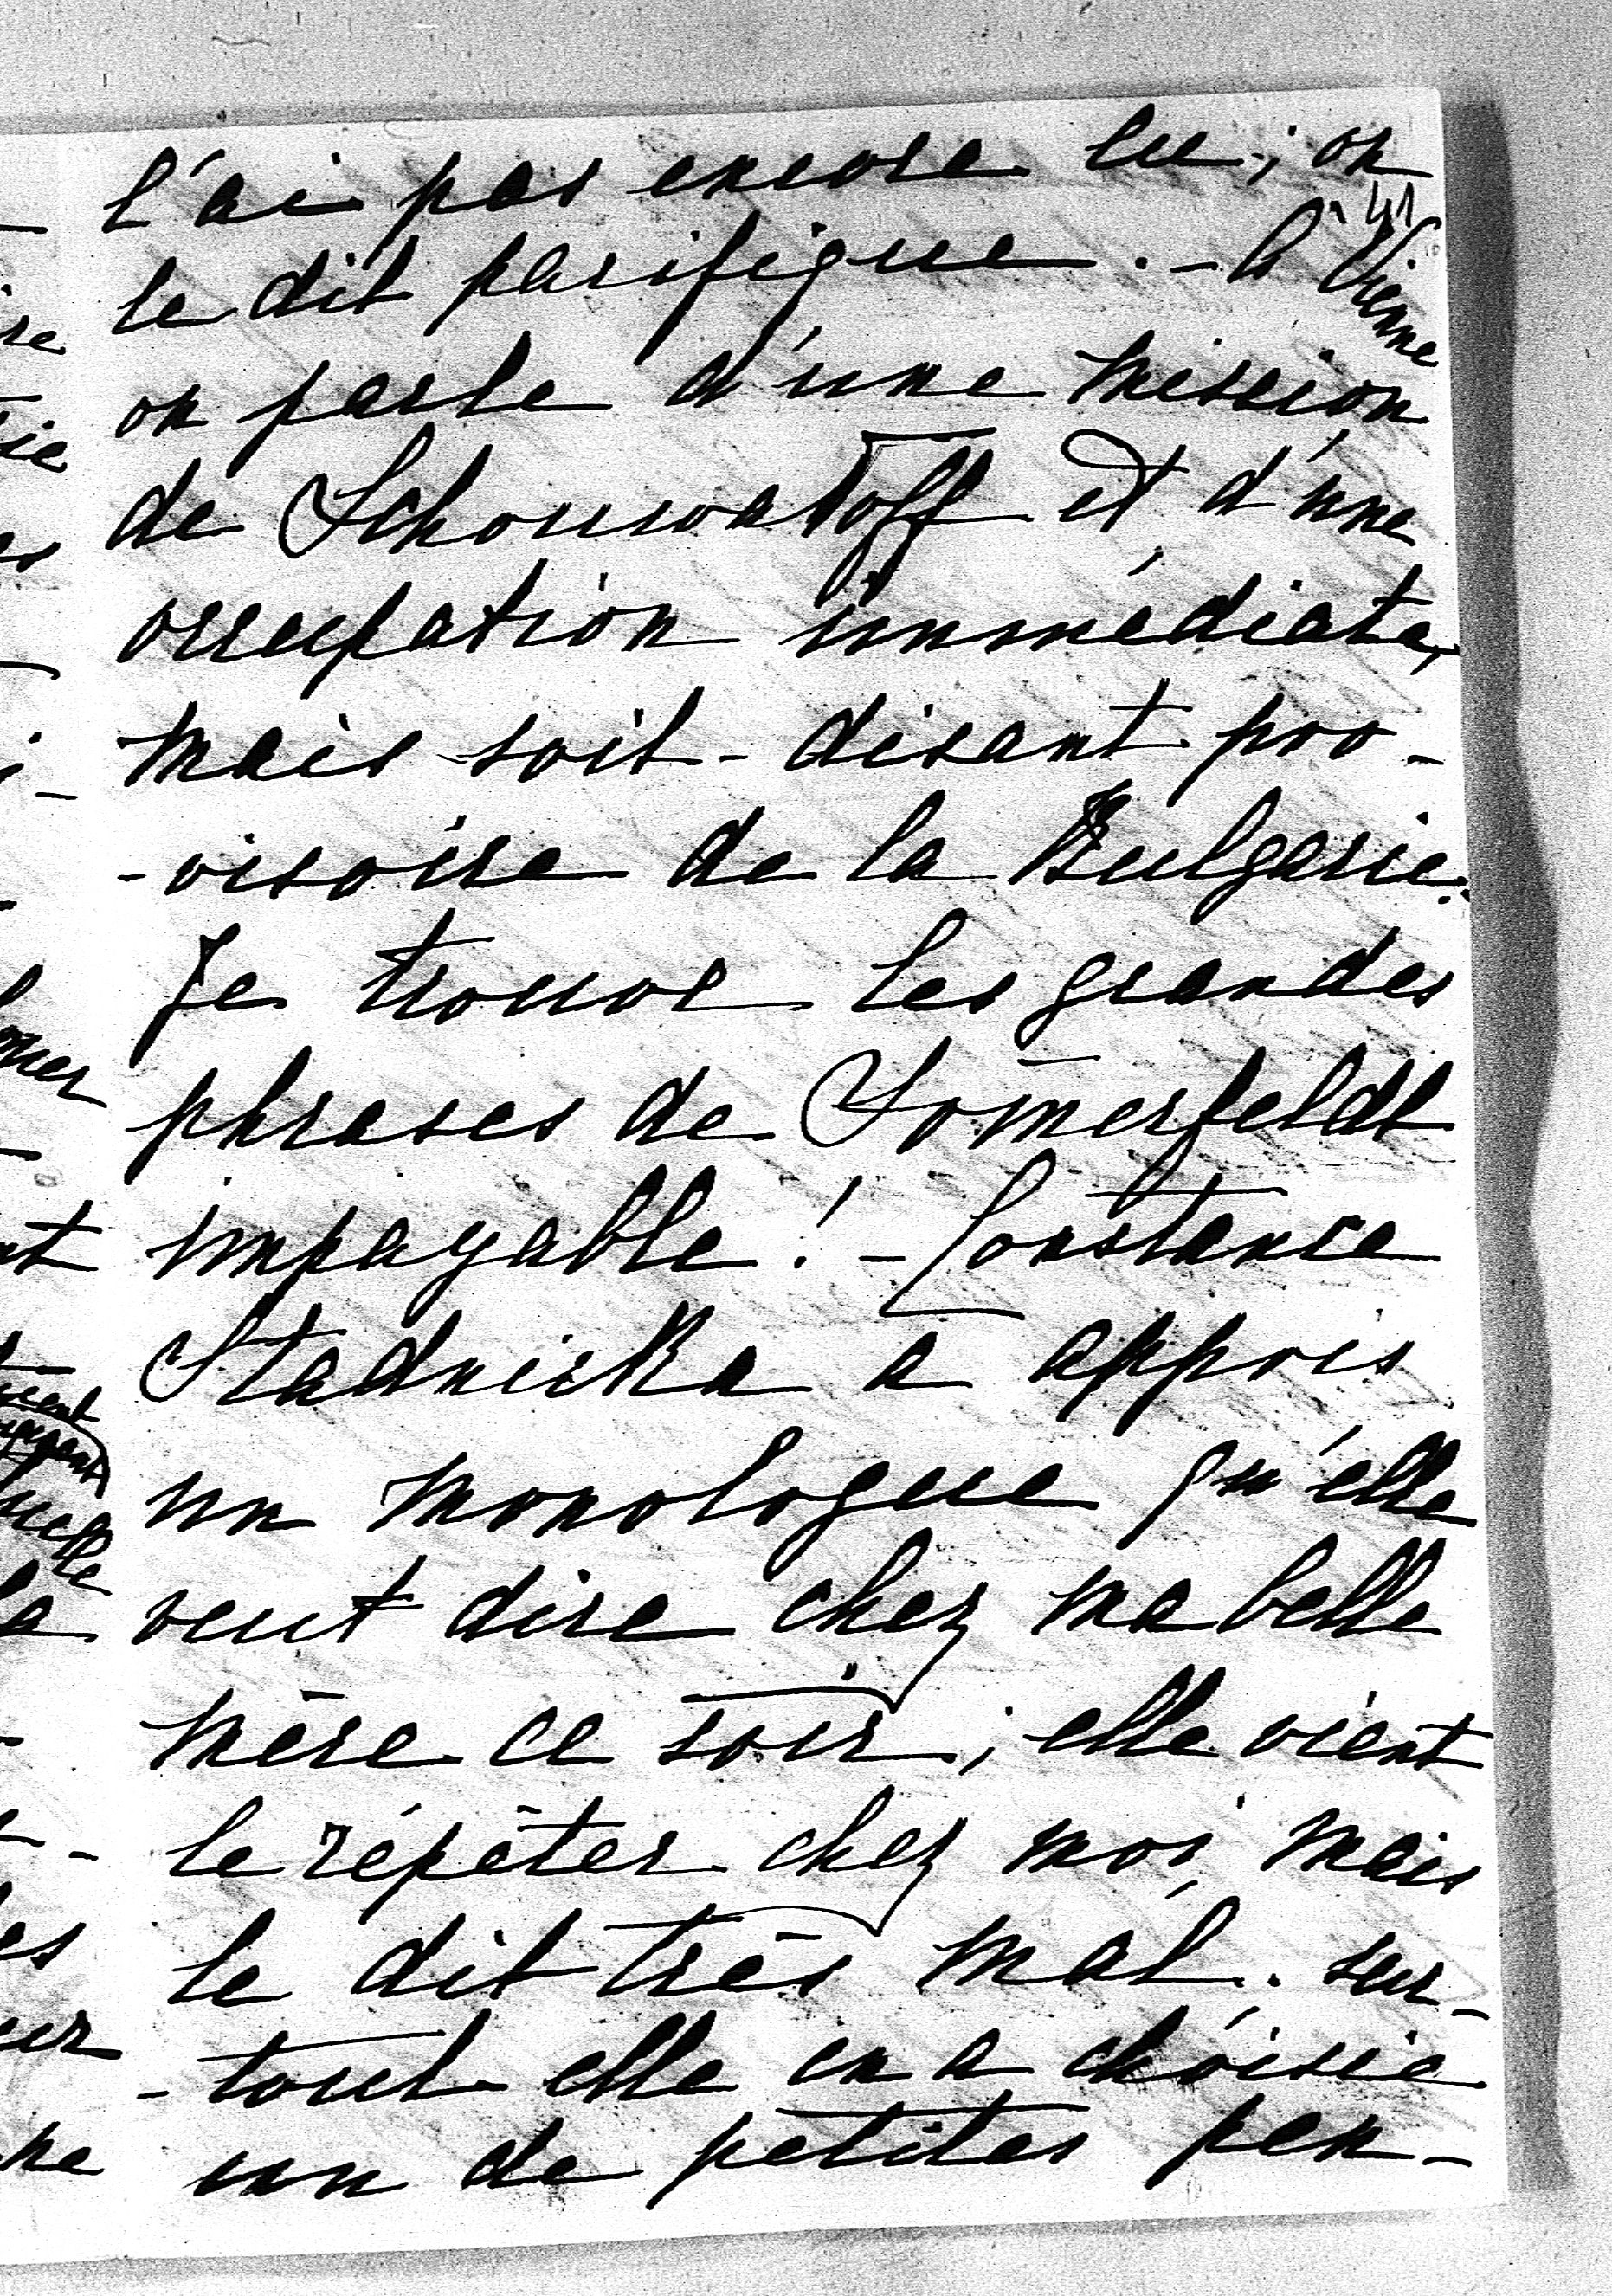 l'ai pas encore lu; on
41
le dit pacifique. - A Vienne
on parle d'une mission
de Schouwaloff et d'une
occupation immédiate,
mais soit-disant pro-
-visoire de la Bulgarie.
Je trouve les grandes
phrases de Somerfeldt
impayable! - Constance
Stadnicka a appris
un monologue qu'elle
veut dire chez ma belle
mère ce soir; elle vient
le répéter chez moi mais
le dit très mal. sur-
-tout elle en a choisie
un de petites pen-